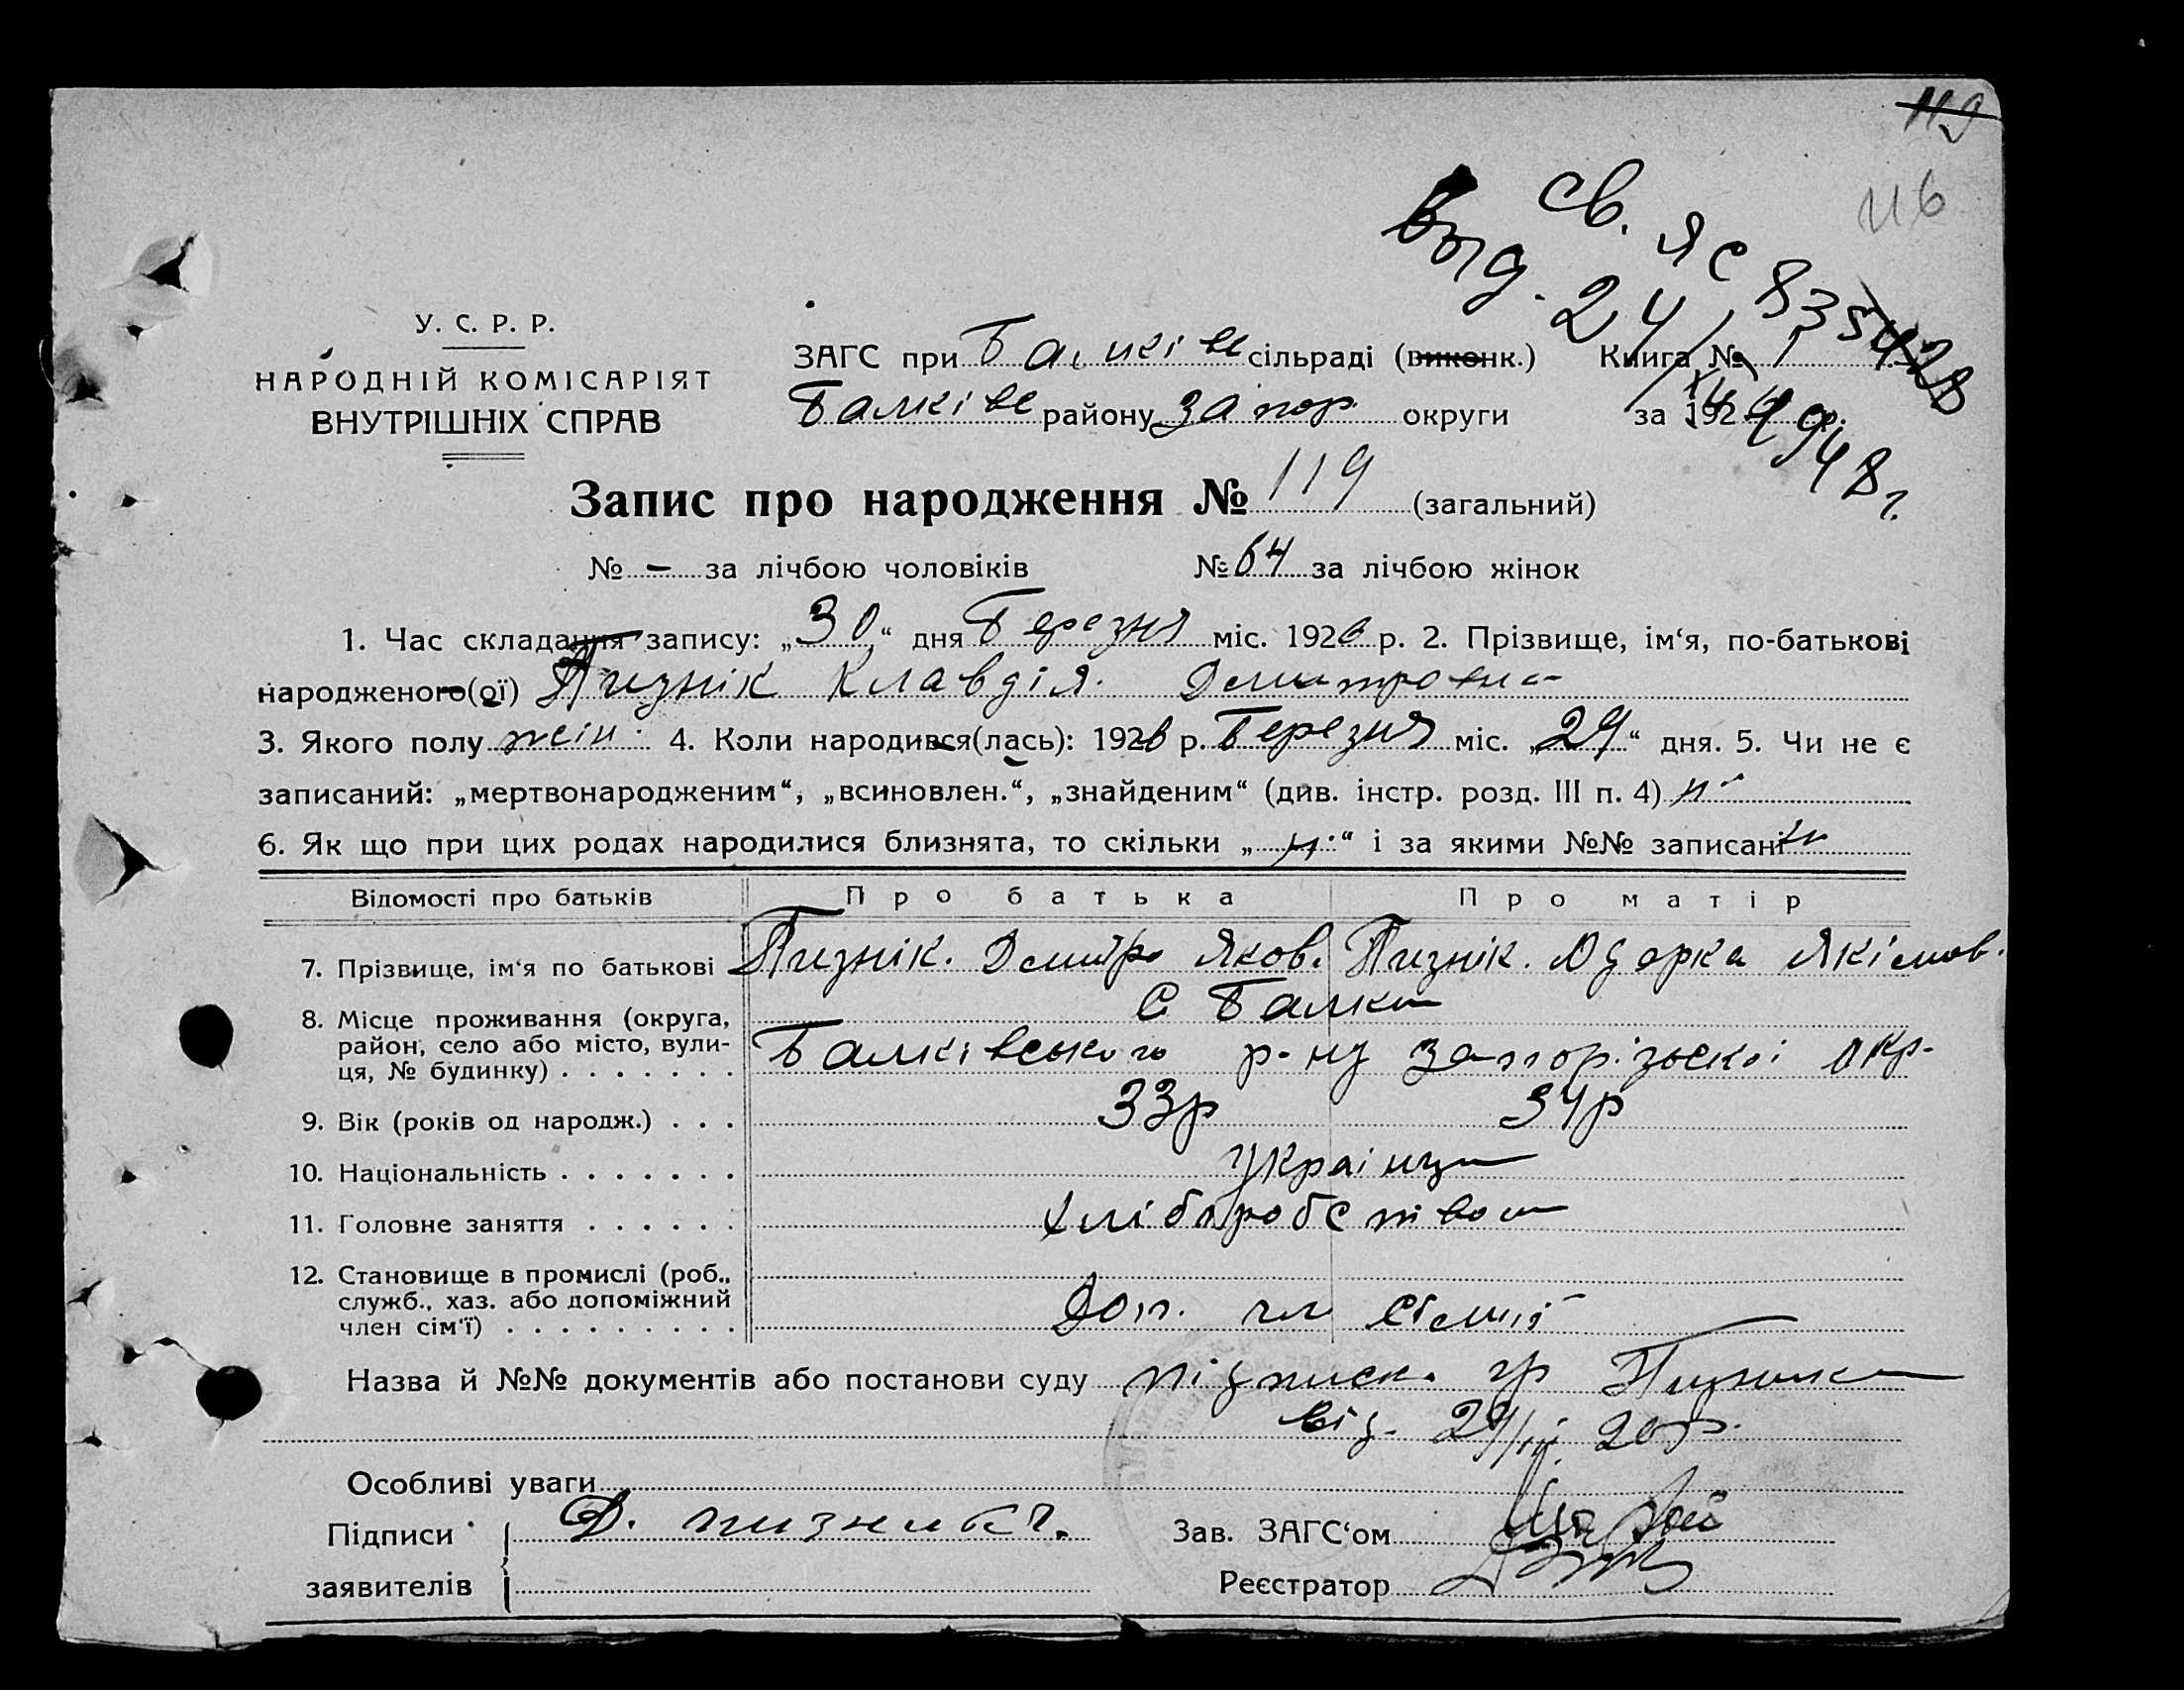 119
116
св. ЯС 835428
выд. 24/XII 1948 г.
У. С. Р. Р.
НАРОДНІЙ КОМІСАРІЯТ
ВНУТРІШНІХ СПРАВ
ЗАГС при Балків сільраді (виконк.) Книга № 1
Балків району Запор. округи за 1926 р.
Запис про народження № 119 (загальний)
№ – за лічбою чоловіків № 64 за лічбою жінок
1. Час складання запису: „30“ дня Березня міс. 1926 р. 2. Прізвище, ім‘я, по-батькові
народженого(ої) Пизнік Клавдія Дмитровна
3. Якого полу жін. 4. Коли народився(лась): 1926 р. Березня міс. „29“ дня. 5. Чи не є
записаний: „мертвонародженим“, „всиновлен.“, „знайденим“ (див. інстр. розд. III п. 4) н
6. Як що при цих родах народилися близнята, то скільки „н“ і за якими №№ записані н
Відомості про батьків Про батька Про матір
7. Прізвище, ім‘я по батькові Пизнік. Дмитро Яков. Пизнік. Одарка Якімов.
8. Місце проживання (округа, район, село або місто, вули-ця, № будинку) . . . . . . . С Балки
Балківського р-ну Запорізької окр.
9. Вік (років од народж.) . . . 33р 34р
10. Національність . . . . . . . Українці
11. Головне заняття . . . . . . Хліборобство
12. Становище в промислі (роб., служб., хаз. або допоміжний член сім‘ї) . . . . . . . . . Доп. чл сімї
Назва й №№ документів або постанови суду підписк. гр Пизника
від. 29/III 26р.
Особливі уваги
Підписи заявителів Д. пизник
Зав. ЗАГС‘ом
Реєстратор